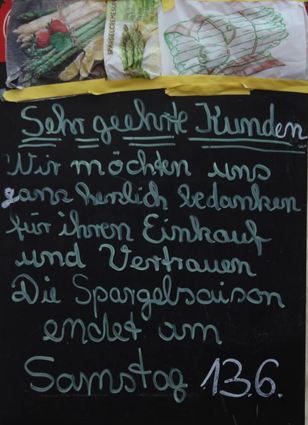 Sehr geehrte Kunden
Wir möchten uns
ganz herzlich bedanken
für ihren Einkauf
und Vertrauen
Die Spargelsaison
endet am
Samstag 13.6.